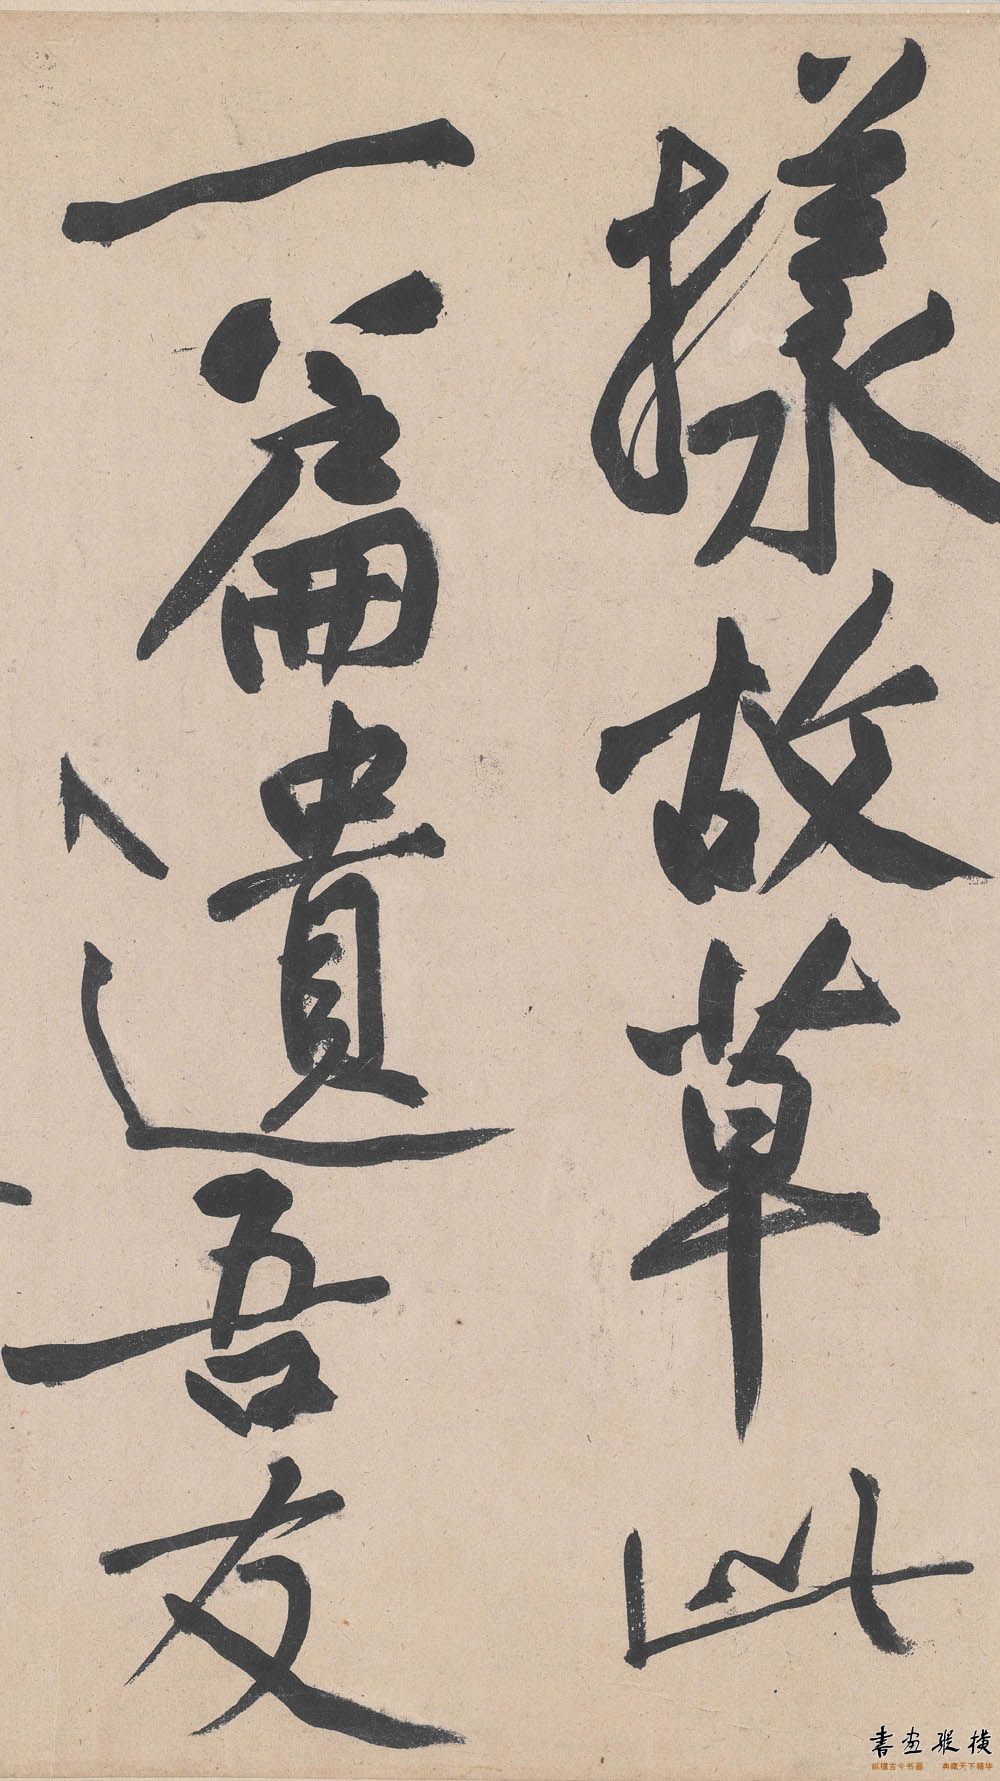 樣故草此
一篇遺吾友
書画縱横
纵横古今书画 典藏天下精华